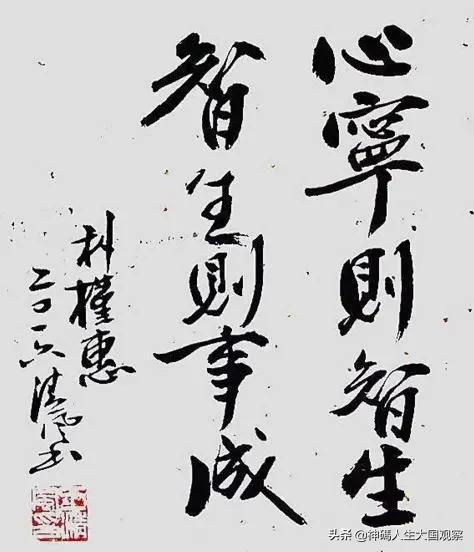 心寧則智生
智生則事成
朴槿惠
二〇一六清風书
头条 @神碼人生大国观察